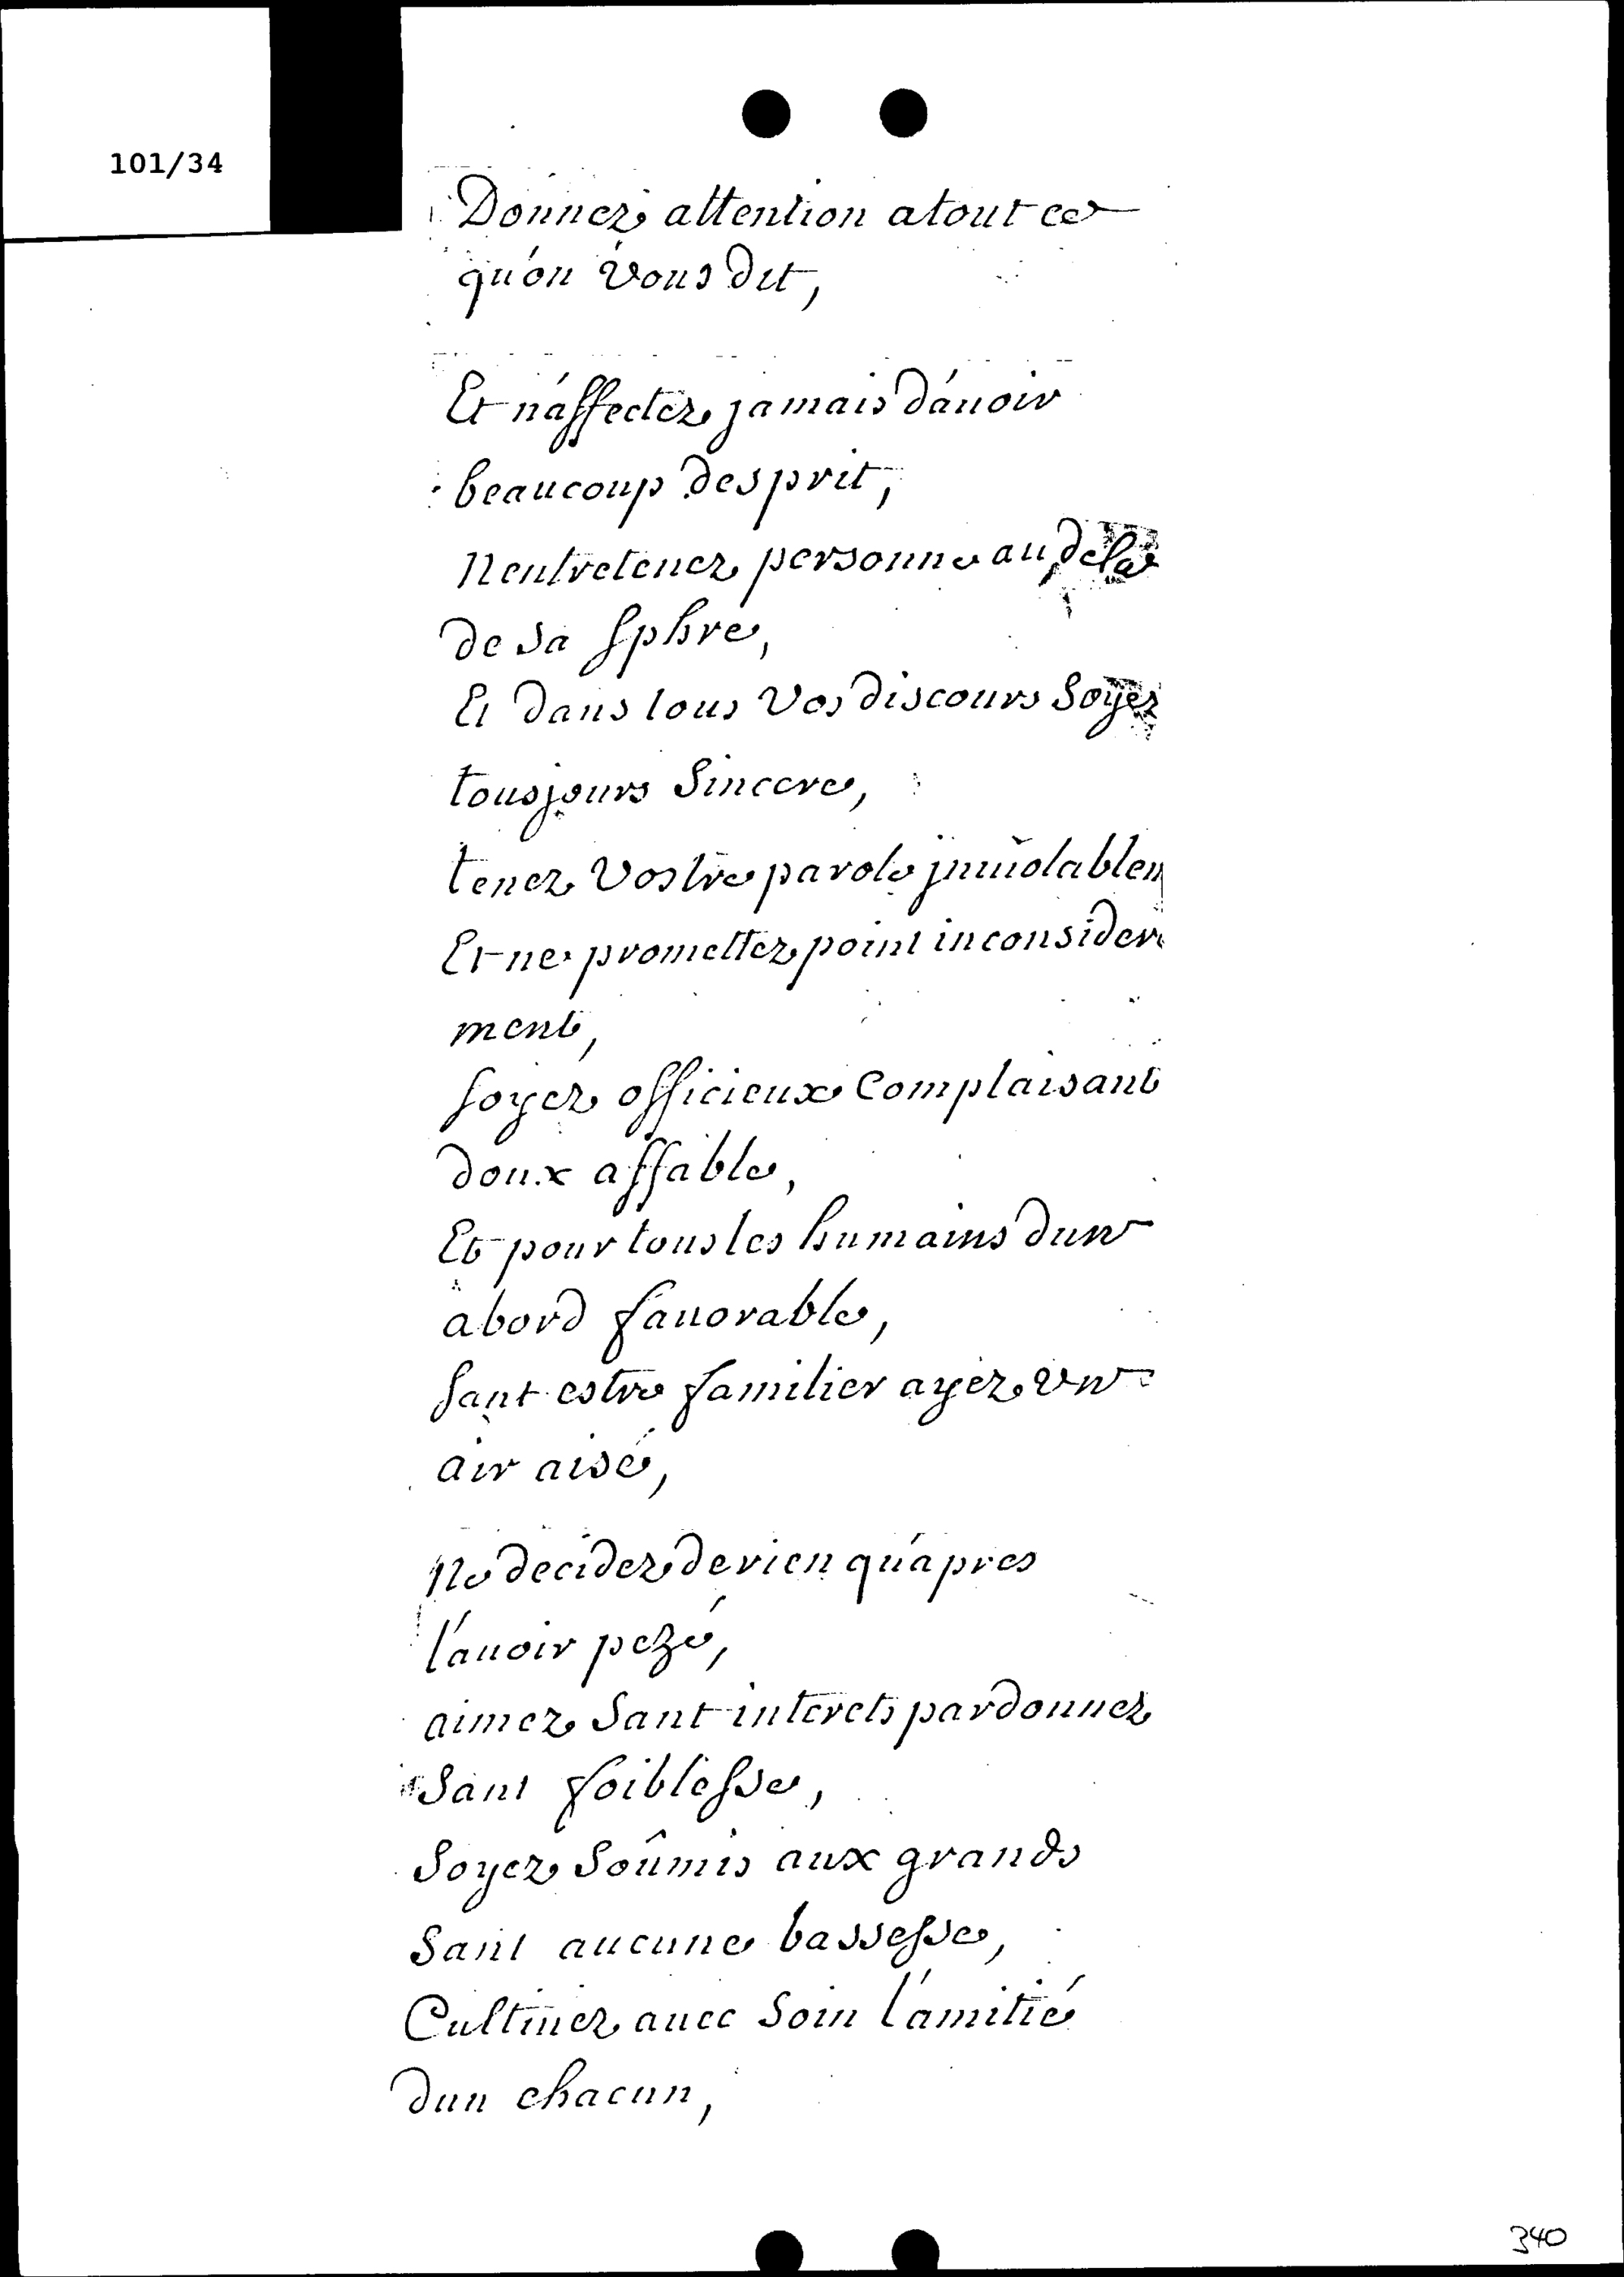 101/34
Donnez attention a tout ce
qu'on Vous dit,
Et n'affectez jamais d'auoir
beaucoup desprit,
Nentretenez personne au dela
de sa sphre,
Et dans tous Vos discours Soyez
tousjours Sincere,
tenez Vostre parole jnuiolablem
Et ne promettez point inconsidere
ment,
soyez officieux Complaisant
doux affable,
Et pour tous les humains dun
abord fauorable,
sant estre familier ayez Vn
air aisé,
Ne decidez de rien qu'apres
l'auoir pezé,
aimez Sant interets pardonnez
Sant foiblesse,
Soyez Soûmis aux grands
Sant aucune bassesse,
Cultiuez auec Soin l'amitié
dun chacun,
340